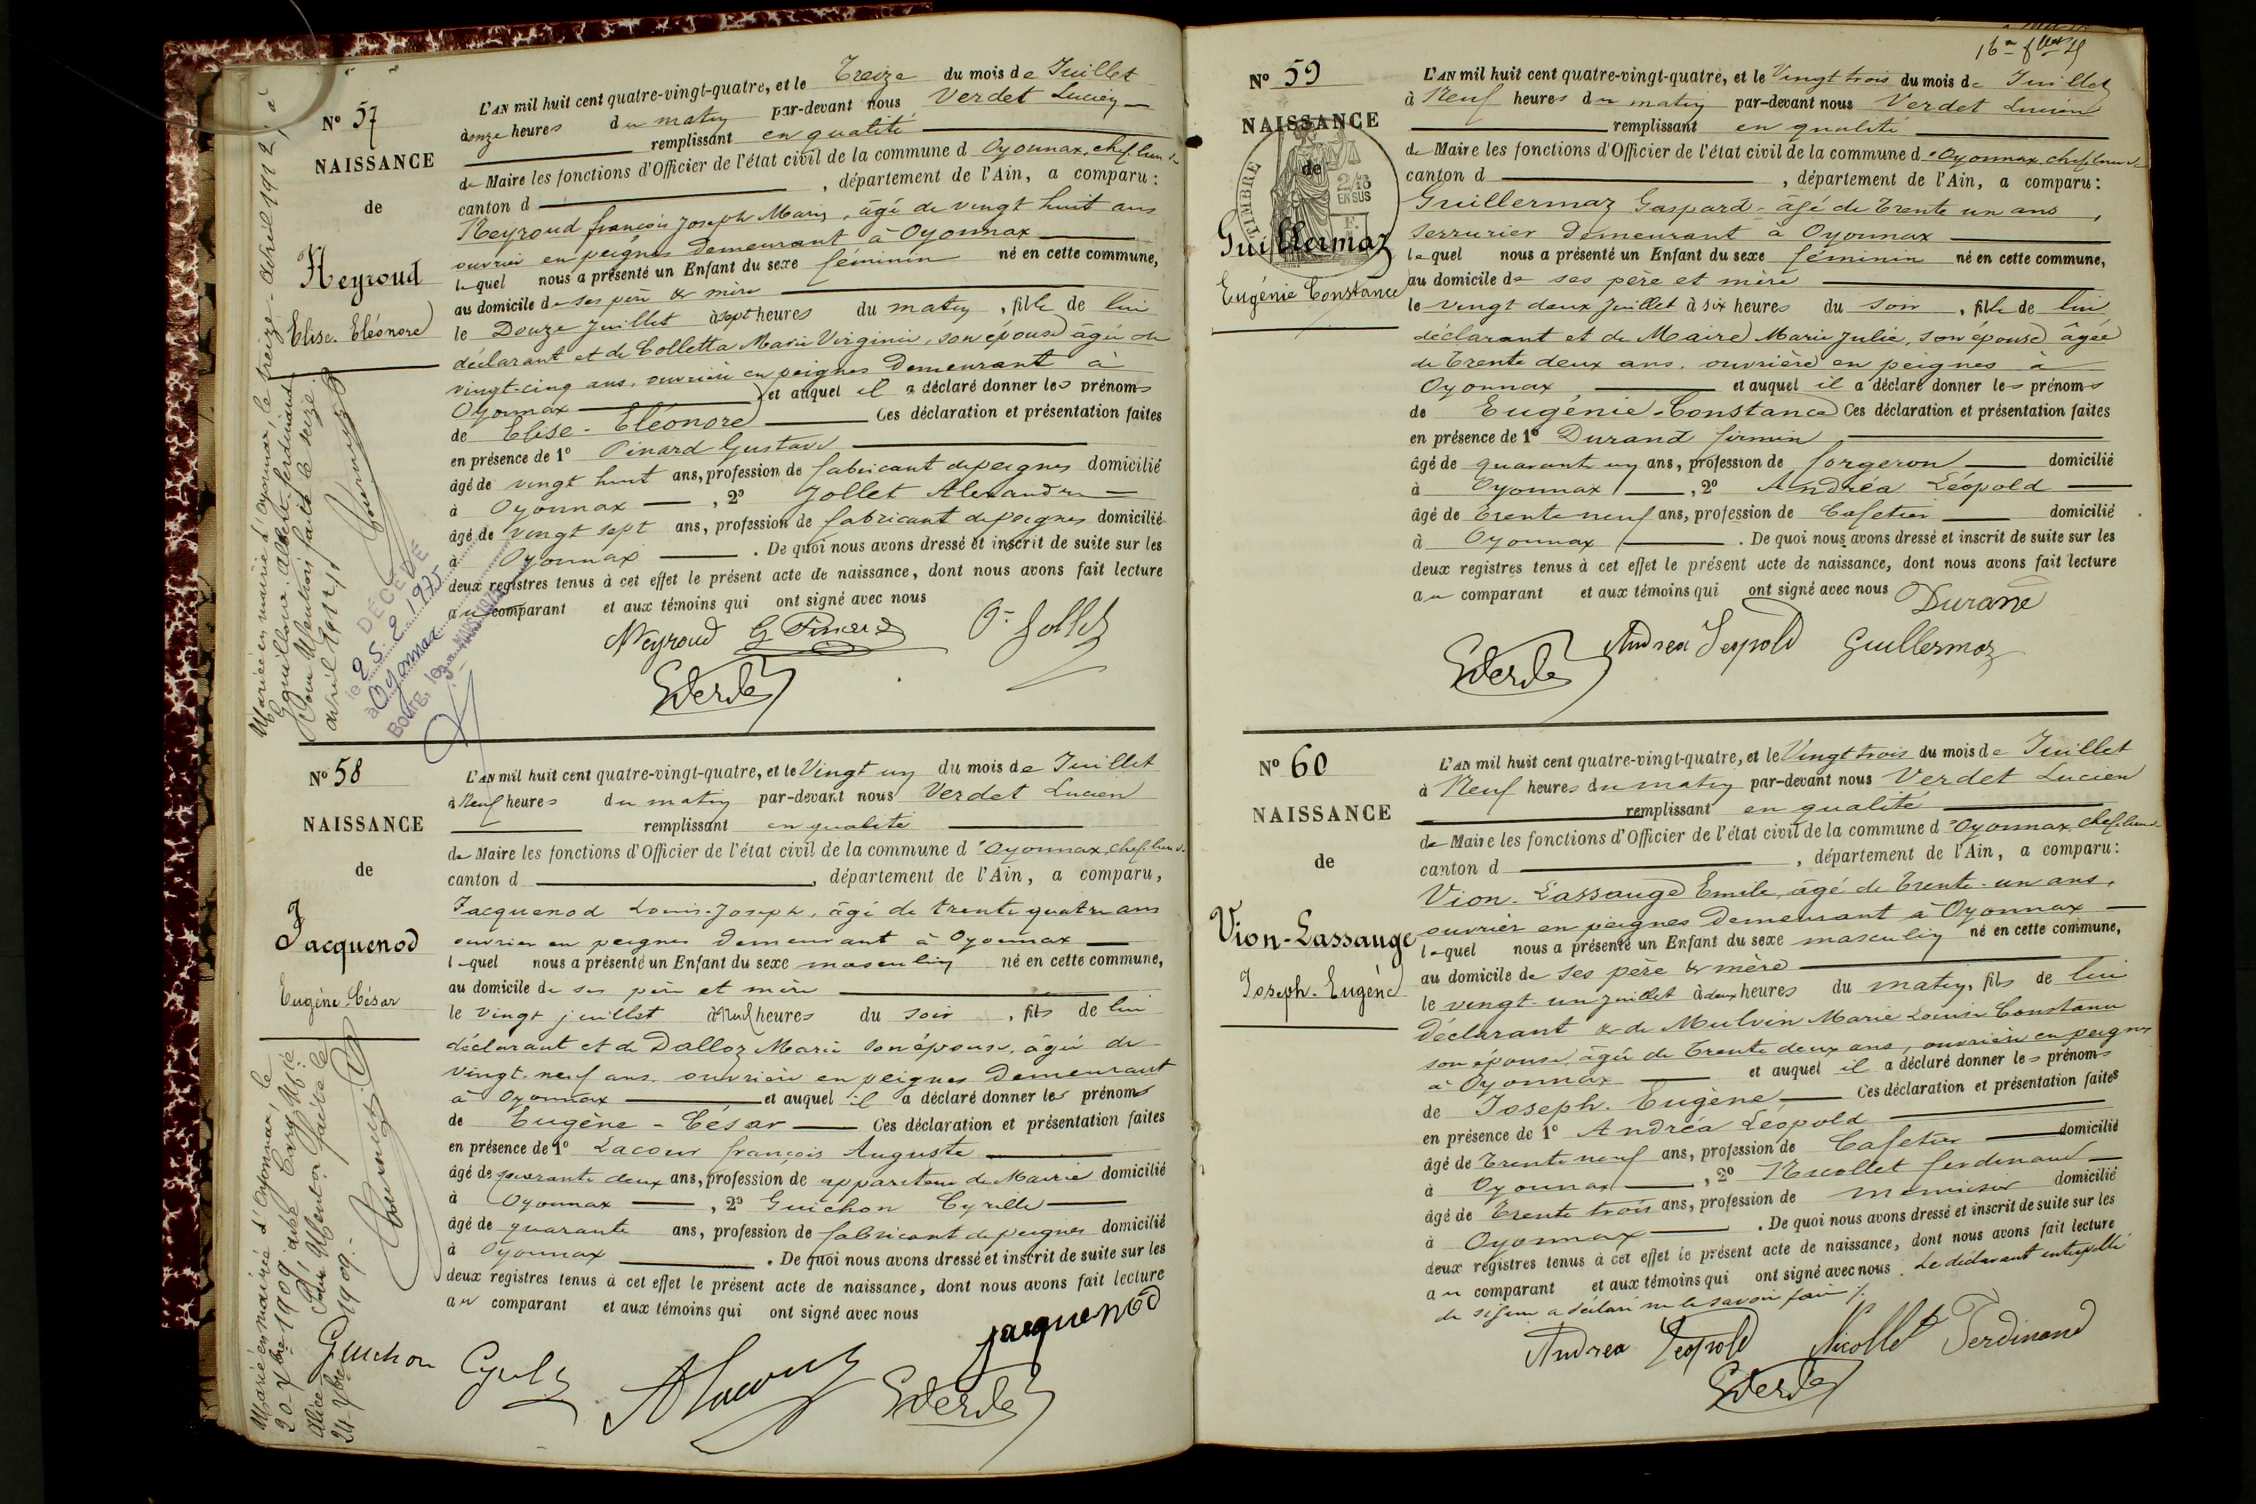 N° 57
NAISSANCE
de
Neyroud
Elise. Eléonore
L'AN mil huit cent quatre-vingt-quatre, et le Treize du mois de Juillet
à onze heures du matin par-devant nous Verdet Lucien
remplissant en qualité
de Maire les fonctions d'Officier de l'état civil de la commune d'Oyonnax, chef lieu de
canton d , département de l'Ain, a comparu :
Neyroud françois Joseph Marie, âgé de vingt huit ans
ouvrier en peignes demeurant à Oyonnax
lequel nous a présenté un Enfant du sexe féminin né en cette commune,
au domicile de ses père & mère
le Douze Juillet à sept heures du matin, fille de lui
déclarant et de Colletta Marie Virginie, son épouse âgée de
vingt-cinq ans, ouvrière en peignes demeurant à
Oyonnax et auquel il a déclaré donner les prénoms
de Elise - Eléonore Ces déclaration et présentation faites
en présence de 1° Pinard Gustave
âgé de vingt huit ans, profession de fabricant de peignes domicilié
à Oyonnax , 2° Jollet Alexandre
âgé de vingt sept ans, profession de fabricant de peignes domicilié
à Oyonnax . De quoi nous avons dressé et inscrit de suite sur les
deux registres tenus à cet effet le présent acte de naissance, dont nous avons fait lecture
au comparant et aux témoins qui ont signé avec nous
Neyroud G Pinard Jollet
Verdet
Mariée en mairie d'Oyonnax, le treize avril 1912, à
Eguillour Albert ferdinand.
Pour Mention faite le seize
avril 1912
DÉCÉDÉ
le 25.2.1975
à Oyonnax
N° 58
NAISSANCE
de
Jacquenod
Eugène César
L'AN mil huit cent quatre-vingt-quatre, et le Vingt un du mois de Juillet
à Neuf heures du matin par-devant nous Verdet Lucien
remplissant en qualité
de Maire les fonctions d'Officier de l'état civil de la commune d'Oyonnax, chef lieu de
canton d , département de l'Ain, a comparu,
Jacquenod Louis-Joseph, âgé de trente quatre ans
ouvrier en peignes demeurant à Oyonnax
lequel nous a présenté un Enfant du sexe masculin né en cette commune,
au domicile de ses père et mère
le vingt juillet à Neuf heures du soir, fils de lui
déclarant et de Dalloz Marie son épouse, âgée de
vingt-neuf ans, ouvrière en peignes demeurant
à Oyonnax et auquel il a déclaré donner les prénoms
de Eugène - César Ces déclaration et présentation faites
en présence de 1° Lacour françois Auguste
âgé de quarante deux ans, profession de appariteur de Mairie domicilié
à Oyonnax , 2° Guichon Cyrille
âgé de quarante ans, profession de fabricant de peignes domicilié
à Oyonnax . De quoi nous avons dressé et inscrit de suite sur les
deux registres tenus à cet effet le présent acte de naissance, dont nous avons fait lecture
au comparant et aux témoins qui ont signé avec nous
jacquenod
Guichon Cyrille A Lacour Verdet
Marié en mairie d'Oyonnax, le
20 7bre 1909 avec
Alice Pour Mention faite le
24 7bre 1909.-
N° 59
NAISSANCE
de
TIMBRE
2/10
EN SUS
Guillermoz
Eugénie Constance
L'AN mil huit cent quatre-vingt-quatre, et le Vingt trois du mois de Juillet
à Neuf heures du matin par-devant nous Verdet Lucien
remplissant en qualité
de Maire les fonctions d'Officier de l'état civil de la commune d'Oyonnax chef lieu de
canton d , département de l'Ain, a comparu :
Guillermoz Gaspard - âgé de Trente un ans,
serrurier demeurant à Oyonnax
lequel nous a présenté un Enfant du sexe féminin né en cette commune,
au domicile de ses père et mère
le vingt deux Juillet à six heures du soir, fille de lui
déclarant et de Maire Marie Julie, son épouse âgée
de Trente deux ans, ouvrière en peignes à
Oyonnax et auquel il a déclaré donner les prénoms
de Eugénie-Constance Ces déclaration et présentation faites
en présence de 1° Durand firmin
âgé de quarante un ans, profession de forgeron domicilié
à Oyonnax , 2° Andréa Léopold
âgé de Trente neuf ans, profession de Cafetier domicilié
à Oyonnax . De quoi nous avons dressé et inscrit de suite sur les
deux registres tenus à cet effet le présent acte de naissance, dont nous avons fait lecture
au comparant et aux témoins qui ont signé avec nous Durand
Verdet Andrea Leopold Guillermoz
N° 60
NAISSANCE
de
Vion-Lassauge
Joseph. Eugène
L'AN mil huit cent quatre-vingt-quatre, et le Vingt trois du mois de Juillet
à Neuf heures du matin par-devant nous Verdet Lucien
remplissant en qualité
de Maire les fonctions d'Officier de l'état civil de la commune d'Oyonnax, chef lieu de
canton d , département de l'Ain, a comparu :
Vion-Lassauge Emile, âgé de Trente-un ans,
ouvrier en peignes demeurant à Oyonnax
lequel nous a présenté un Enfant du sexe masculin né en cette commune,
au domicile de ses père & mère
le vingt-un juillet à deux heures du matin, fils de lui
déclarant & de Mulvin Marie Louise Constance
son épouse, âgée de Trente deux ans, ouvrière en peignes
à Oyonnax et auquel il a déclaré donner les prénoms
de Joseph. Eugène Ces déclaration et présentation faites
en présence de 1° Andréa Léopold
âgé de Trente neuf ans, profession de Cafetier domicilié
à Oyonnax , 2° Nicollet ferdinand
âgé de Trente trois ans, profession de menuisier domicilié
à Oyonnax . De quoi nous avons dressé et inscrit de suite sur les
deux registres tenus à cet effet le présent acte de naissance, dont nous avons fait lecture
au comparant et aux témoins qui ont signé avec nous. Le déclarant interpellé
de signer a déclaré ne le savoir faire
Andrea Leopold Nicollet Ferdinand
Verdet